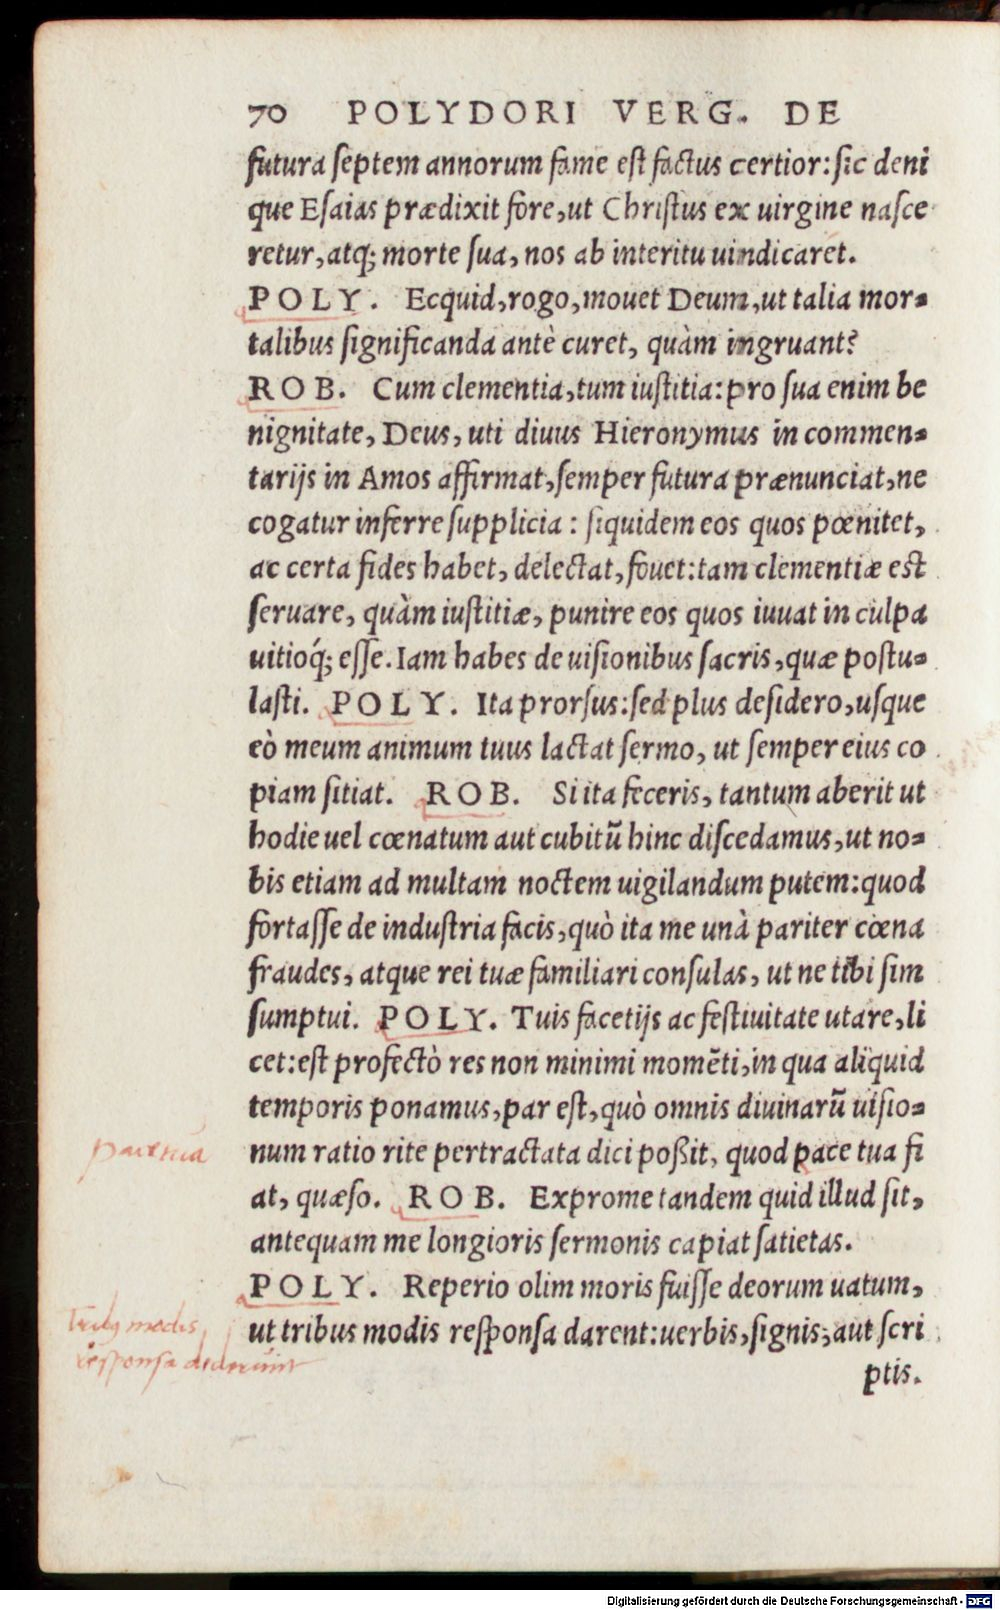 70 POLYDORI VERG. DE
futura septem annorum fame est factus certior: sic deni
que Esaias prædixit fore, ut Christus ex uirgine nasce
retur, atq; morte sua, nos ab interitu uindicaret.
POLY. Ecquid, rogo, mouet Deum, ut talia mor-
talibus significanda antè curet, quàm ingruant?
ROB. Cum clementia, tum iustitia: pro sua enim be
nignitate, Deus, uti diuus Hieronymus in commen-
tarijs in Amos affirmat, semper futura prænunciat, ne
cogatur inferre supplicia: siquidem eos quos pœnitet,
ac certa fides habet, delectat, fouet: tam clementiæ est
seruare, quàm iustitiæ, punire eos quos iuuat in culpa
uitioq́; esse. Iam habes de uisionibus sacris, quæ postu-
lasti. POLY. Ita prorsus: sed plus desidero, usque
eò meum animum tuus lactat sermo, ut semper eius co
piam sitiat. ROB. Si ita feceris, tantum aberit ut
hodie uel cœnatum aut cubitū hinc discedamus, ut no-
bis etiam ad multam noctem uigilandum putem: quod
fortasse de industria facis, quò ita me unà pariter cœna
fraudes, atque rei tuæ familiari consulas, ut ne tibi sim
sumptui. POLY. Tuis facetijs ac festiuitate utare, li
cet: est profectò res non minimi momēti, in qua aliquid
temporis ponamus, par est, quò omnis diuinarū uisio-
num ratio rite pertractata dici poßit, quod pace tua fi
pace tua
at, quæso. ROB. Exprome tandem quid illud sit,
antequam me longioris sermonis capiat satietas.
POLY. Reperio olim moris fuisse deorum uatum,
ut tribus modis responsa darent: uerbis, signis, aut scri
modis
responsa dederunt
ptis.
Digitalisierung gefördert durch die Deutsche Forschungsgemeinschaft - DFG